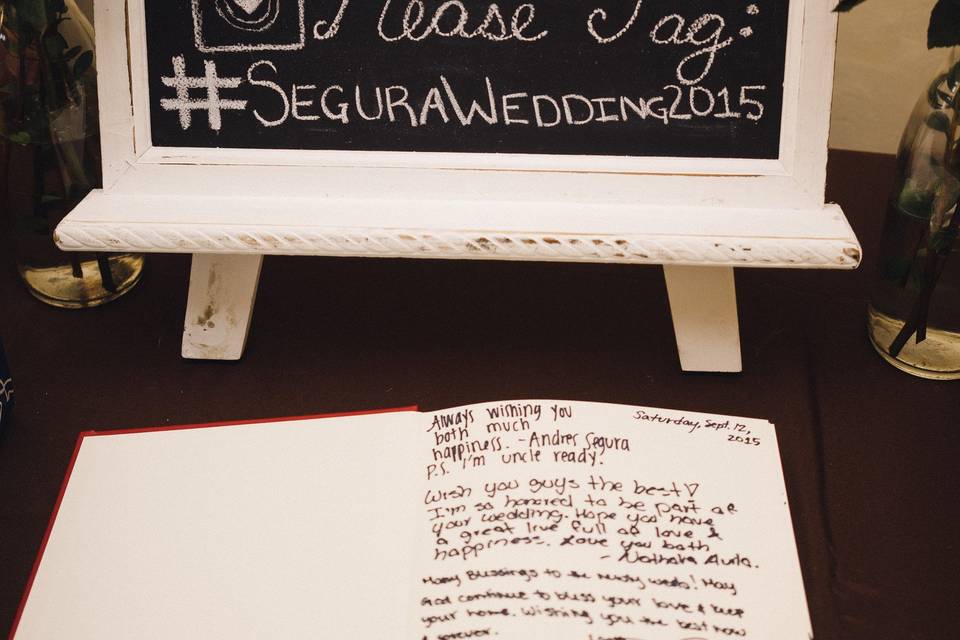 Please Tag:
#SEGURAWEDDING2015
Saturday, Sept. 12,
2015
Always wishing you
both much
happiness. -Andres Segura
P.S. I'm uncle ready.
Wish you guys the best♡
I'm so honored to be part of
your wedding. Hope you have
a great live full of love &
happiness. Love you both
- Nathaly Avila.
Many Blessings to the newly weds! May
God continue to bless your love & keep
your home. Wishing you the best now
& forever.